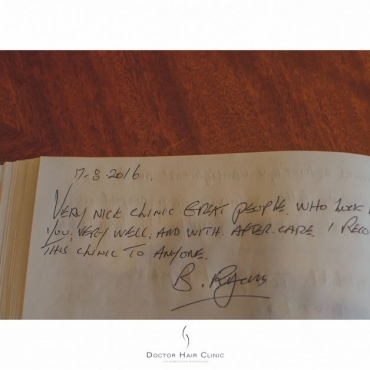 17-8-2016.
VERY NICE CLINIC GREAT PEOPLE. WHO LOOK
YOU, VERY WELL, AND WITH AFTER CARE I RECO
THIS CLINIC TO ANYONE.
B. Ryans
DOCTOR HAIR CLINIC